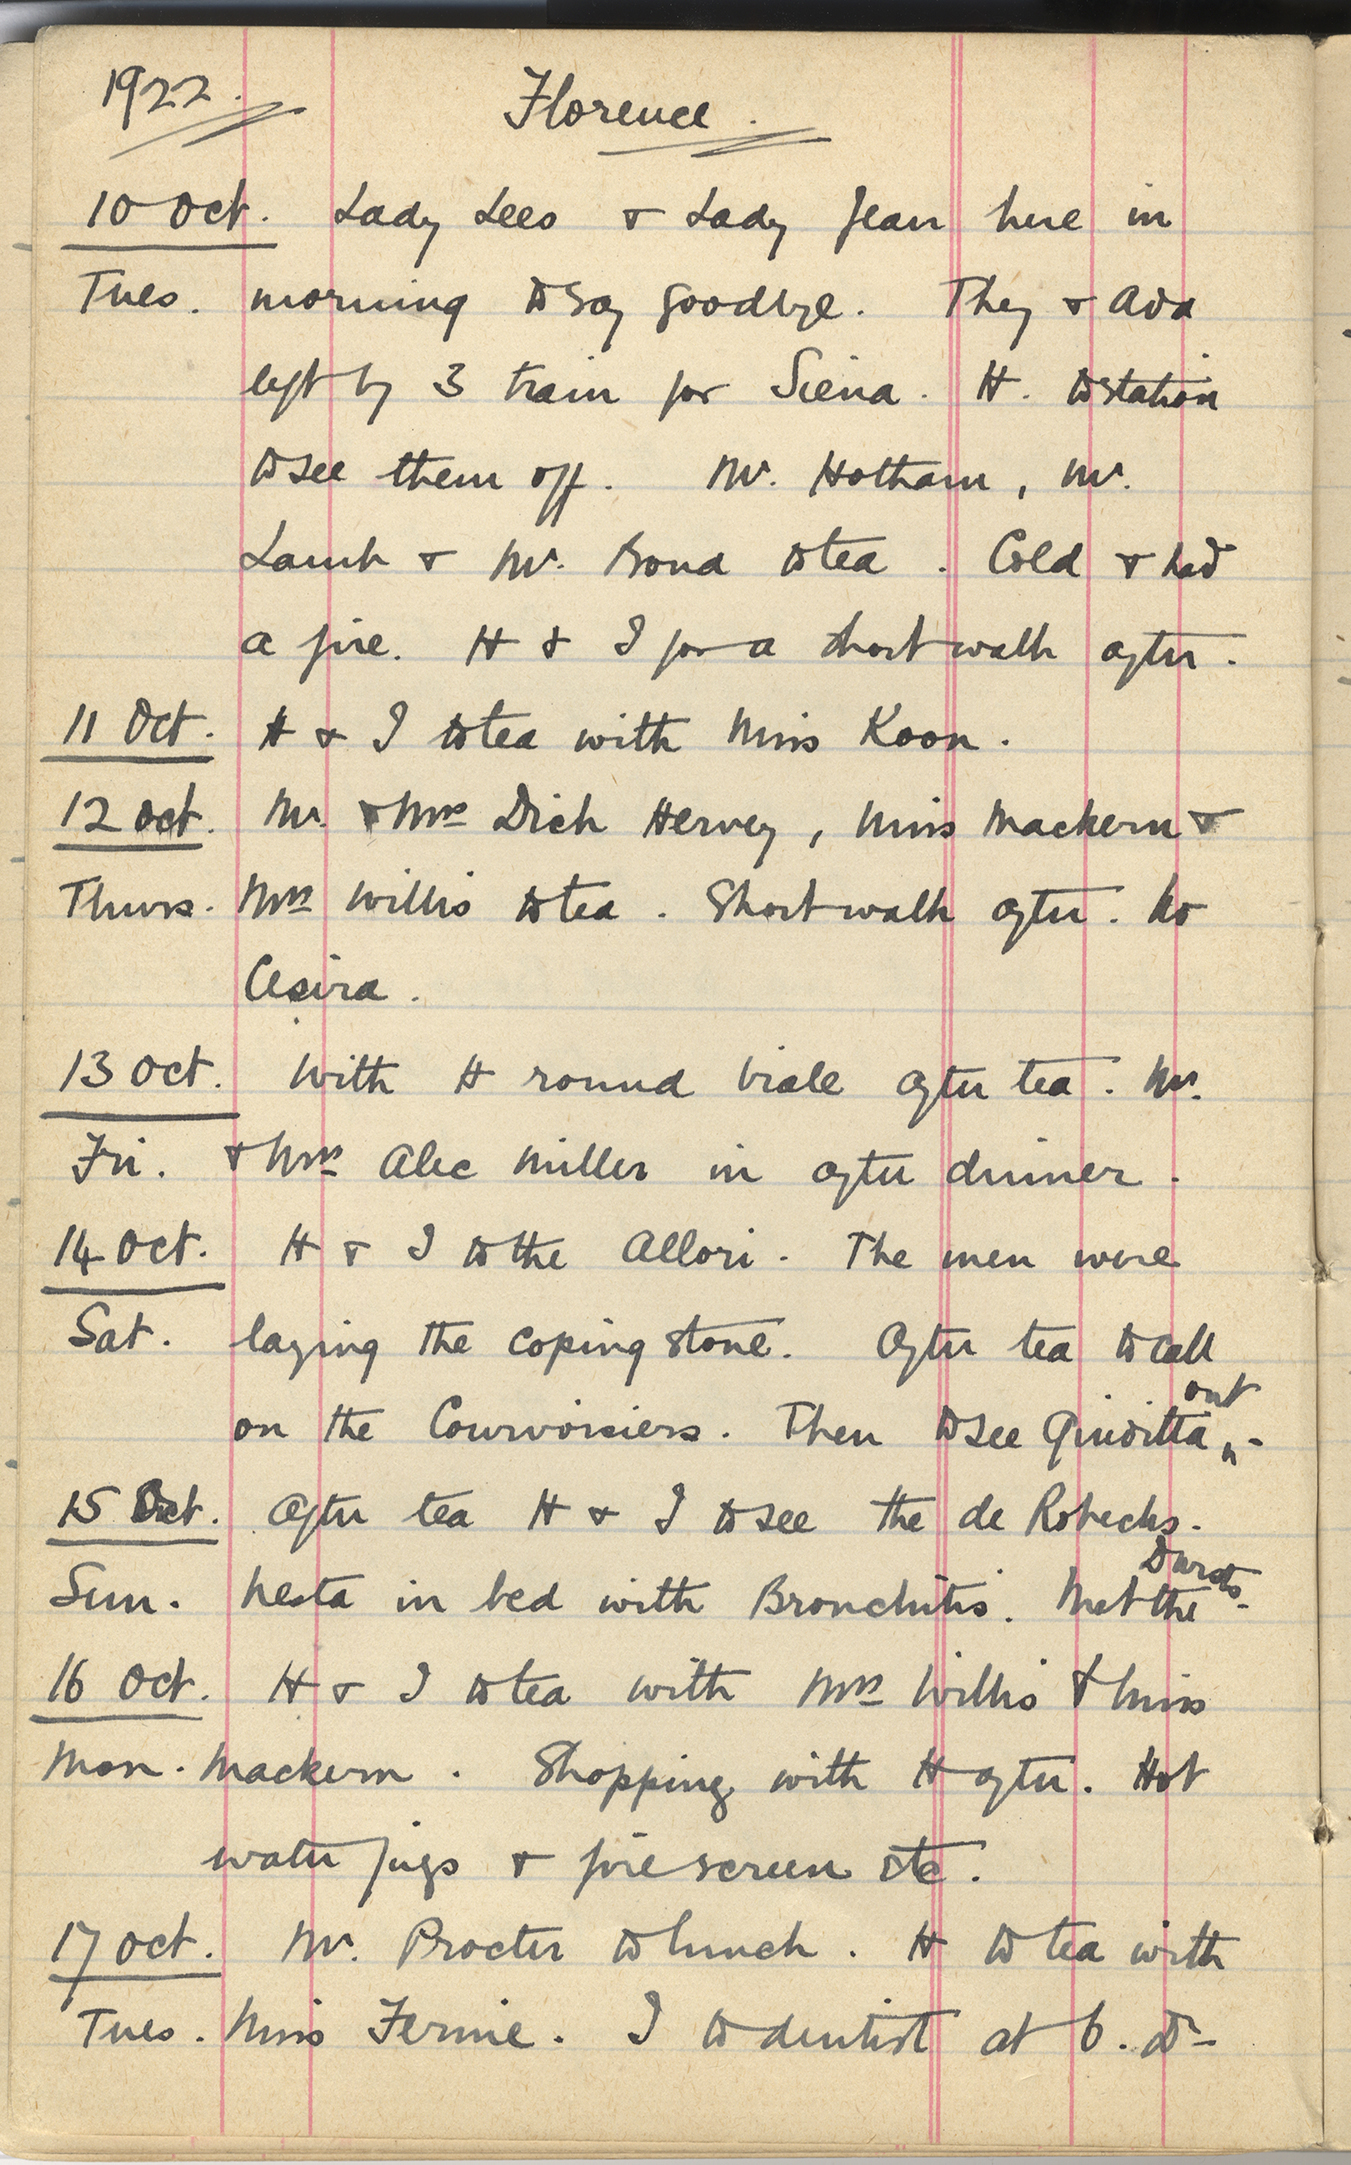 1922. Florence.
10 Oct. Lady Lees & Lady Jean here in
Tues. morning to say goodbye. They & Ada
left by 3 train for Siena. H. to station
to see them off. Mr. Hotham, Mr.
Lamb & Mr. Bond to tea. Cold & had
a fire. H & I for a short walk after.
11 Oct. H & I to tea with Miss Koon.
12 Oct. Mr. & Mrs Dick Hervey, Miss Mackern &
Thurs. Mrs Willis to tea. Short walk after. No
Cesira.
13 Oct. With H round Viale after tea. Mr.
Fri. & Mrs Alec Miller in after dinner.
14 Oct. H & I to the Allori. The men were
Sat. laying the coping stone. After tea to call
on the Courvoisiers. Then to see Giuditta out.
15 Oct. After tea H & I to see the de Robecks.
Sun. Nesta in bed with Bronchitis. Met the
16 Oct. H & I to tea with Mrs Willis & Miss
Mon. Mackern. Shopping with H after. Hot
water jugs & fire screen etc.
17 Oct. Mr. Procter to lunch. H to tea with
Tues. Miss Fernie. I to dentist at 6.